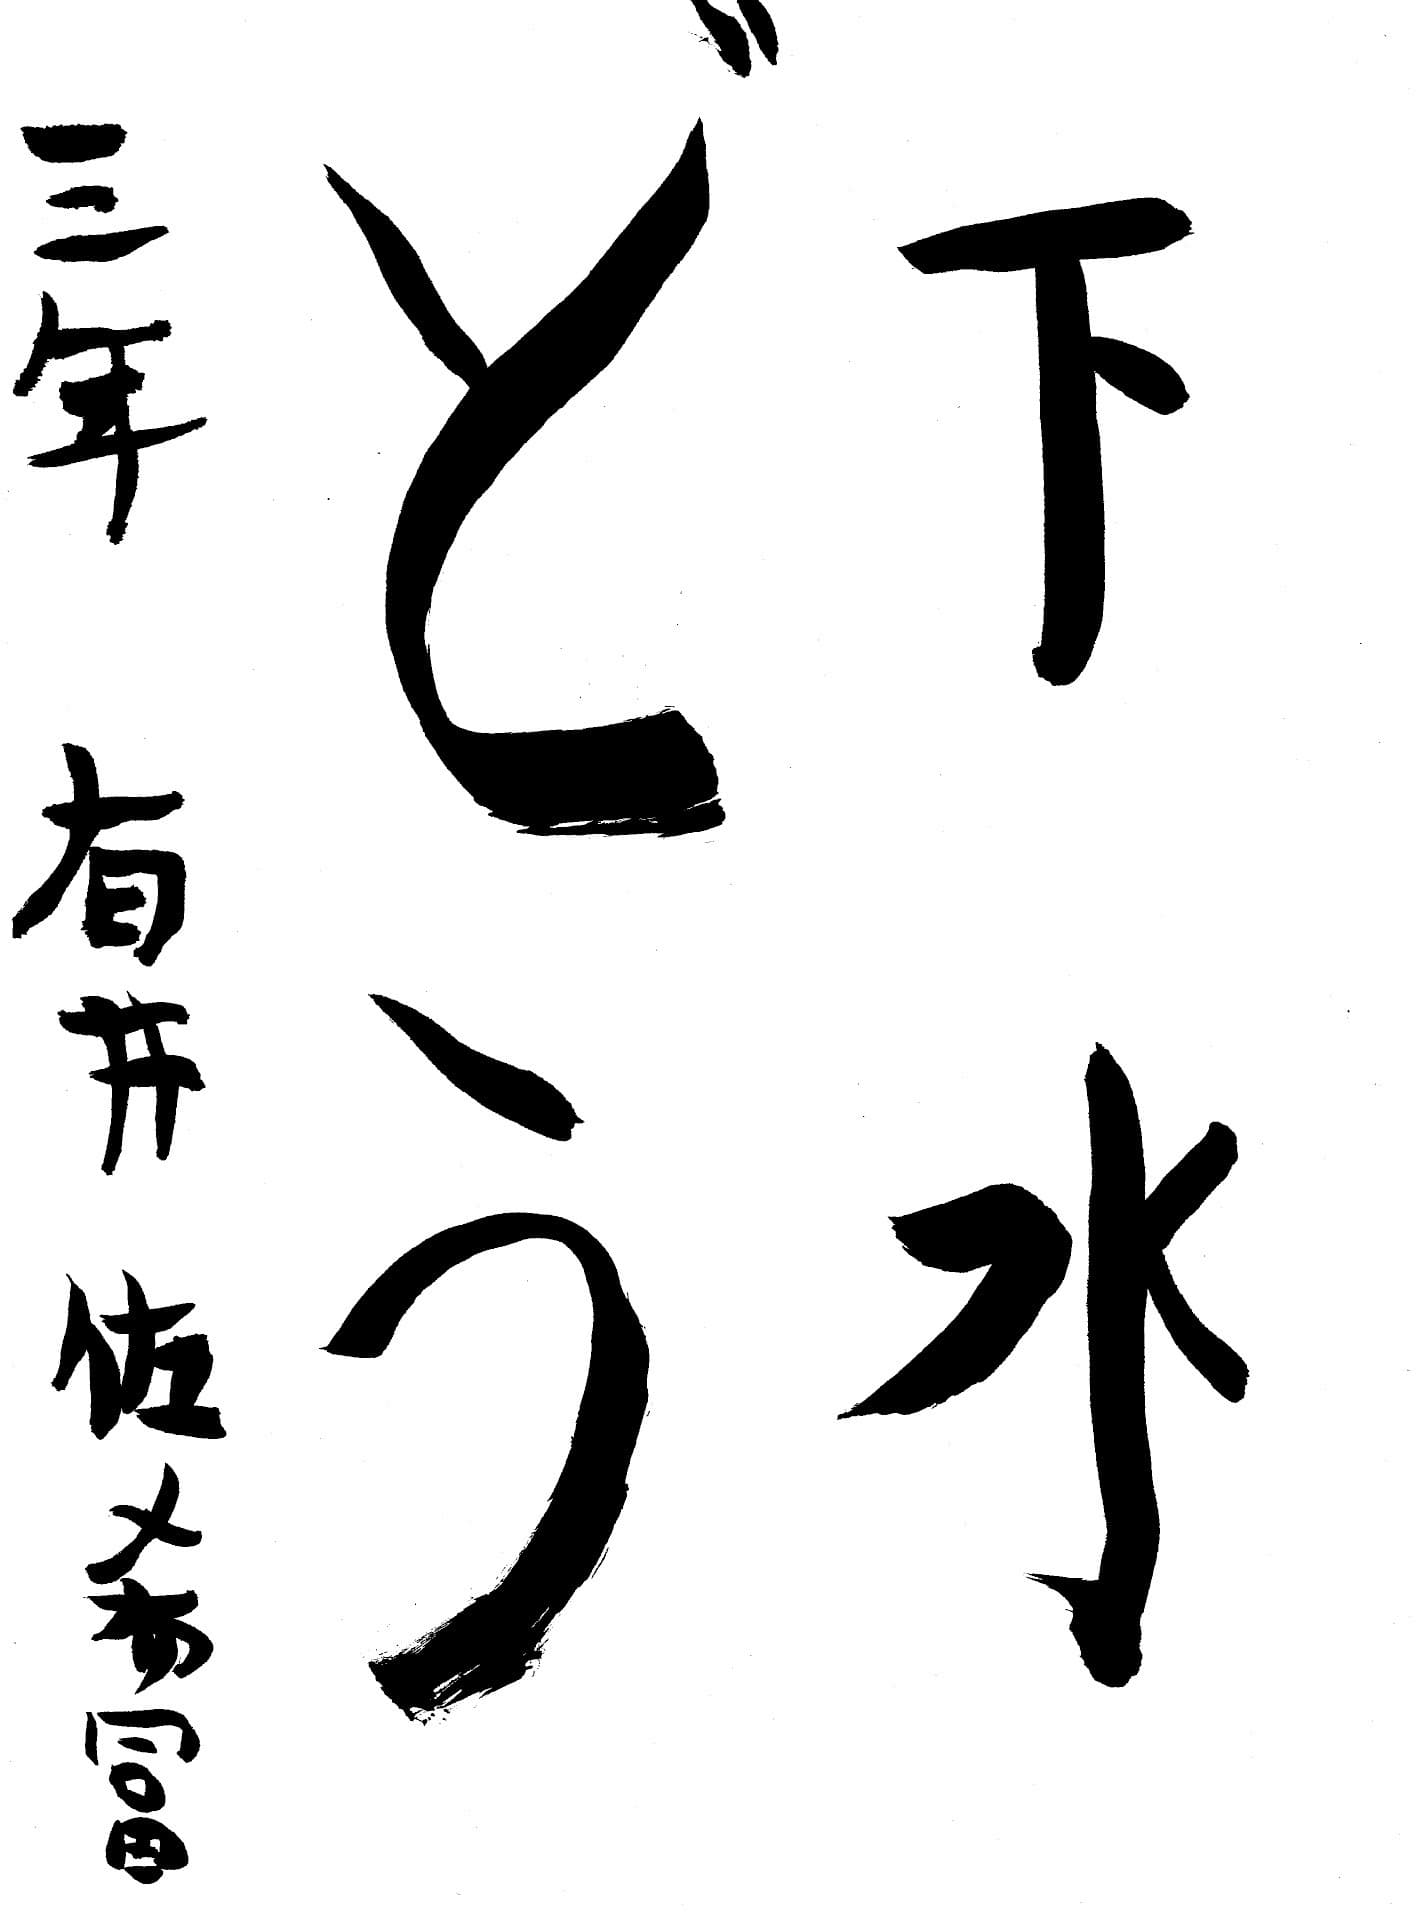 下水
どう
三年 有井 佐希冨